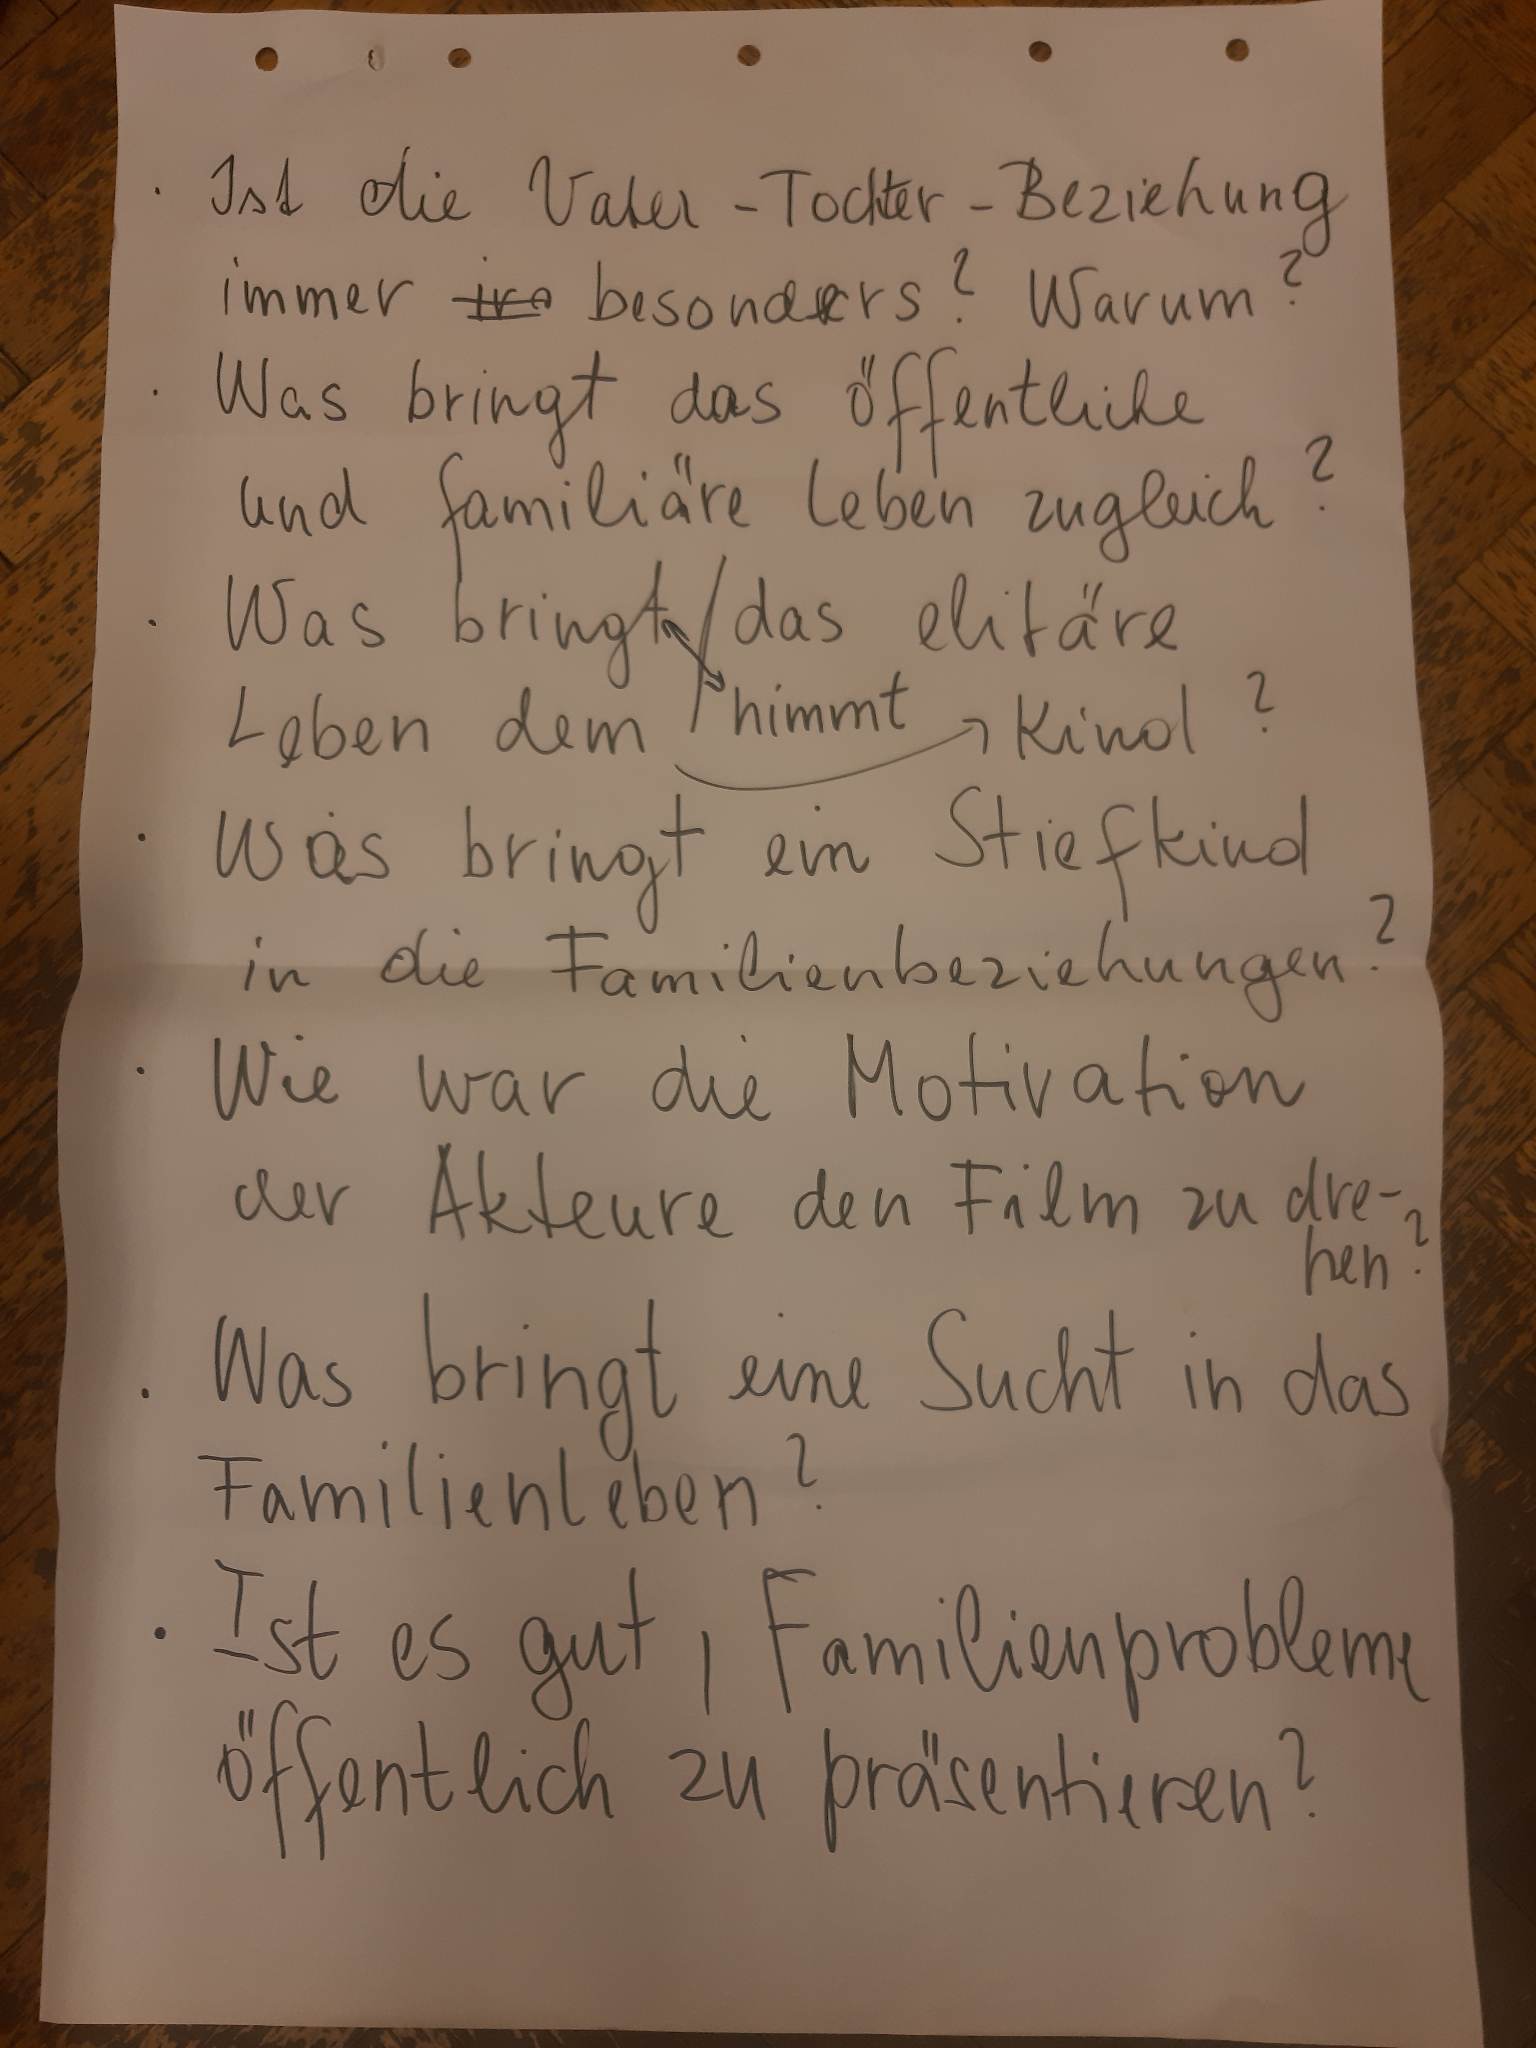 · Ist die Vater-Tochter-Beziehung
immer besonders? Warum?
· Was bringt das öffentliche
und familiäre Leben zugleich?
· Was bringt / das elitäre
Leben dem / nimmt Kind?
· Was bringt ein Stiefkind
in die Familienbeziehungen?
· Wie war die Motivation
der Akteure den Film zu dre-
hen?
· Was bringt eine Sucht in das
Familienleben?
· Ist es gut, Familienprobleme
öffentlich zu präsentieren?